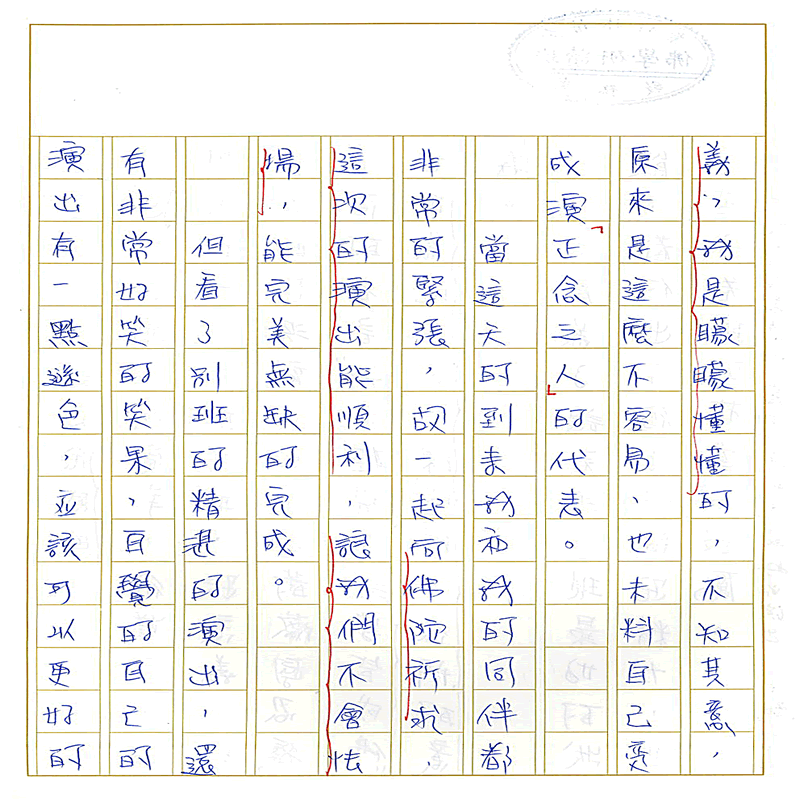 義，我是矇矇懂懂的，不知其意，
原來是這麼不容易，也未料自己變
成演「正念之人」的代表。
當這天的到來我和我的同伴都
非常的緊張，故一起向佛陀祈求，
這次的演出能順利，讓我們不會怯
場，能完美無缺的完成。
但看了別班的精湛的演出，還
有非常好笑的笑果，自覺的自己的
演出有一點遜色，應該可以更好的